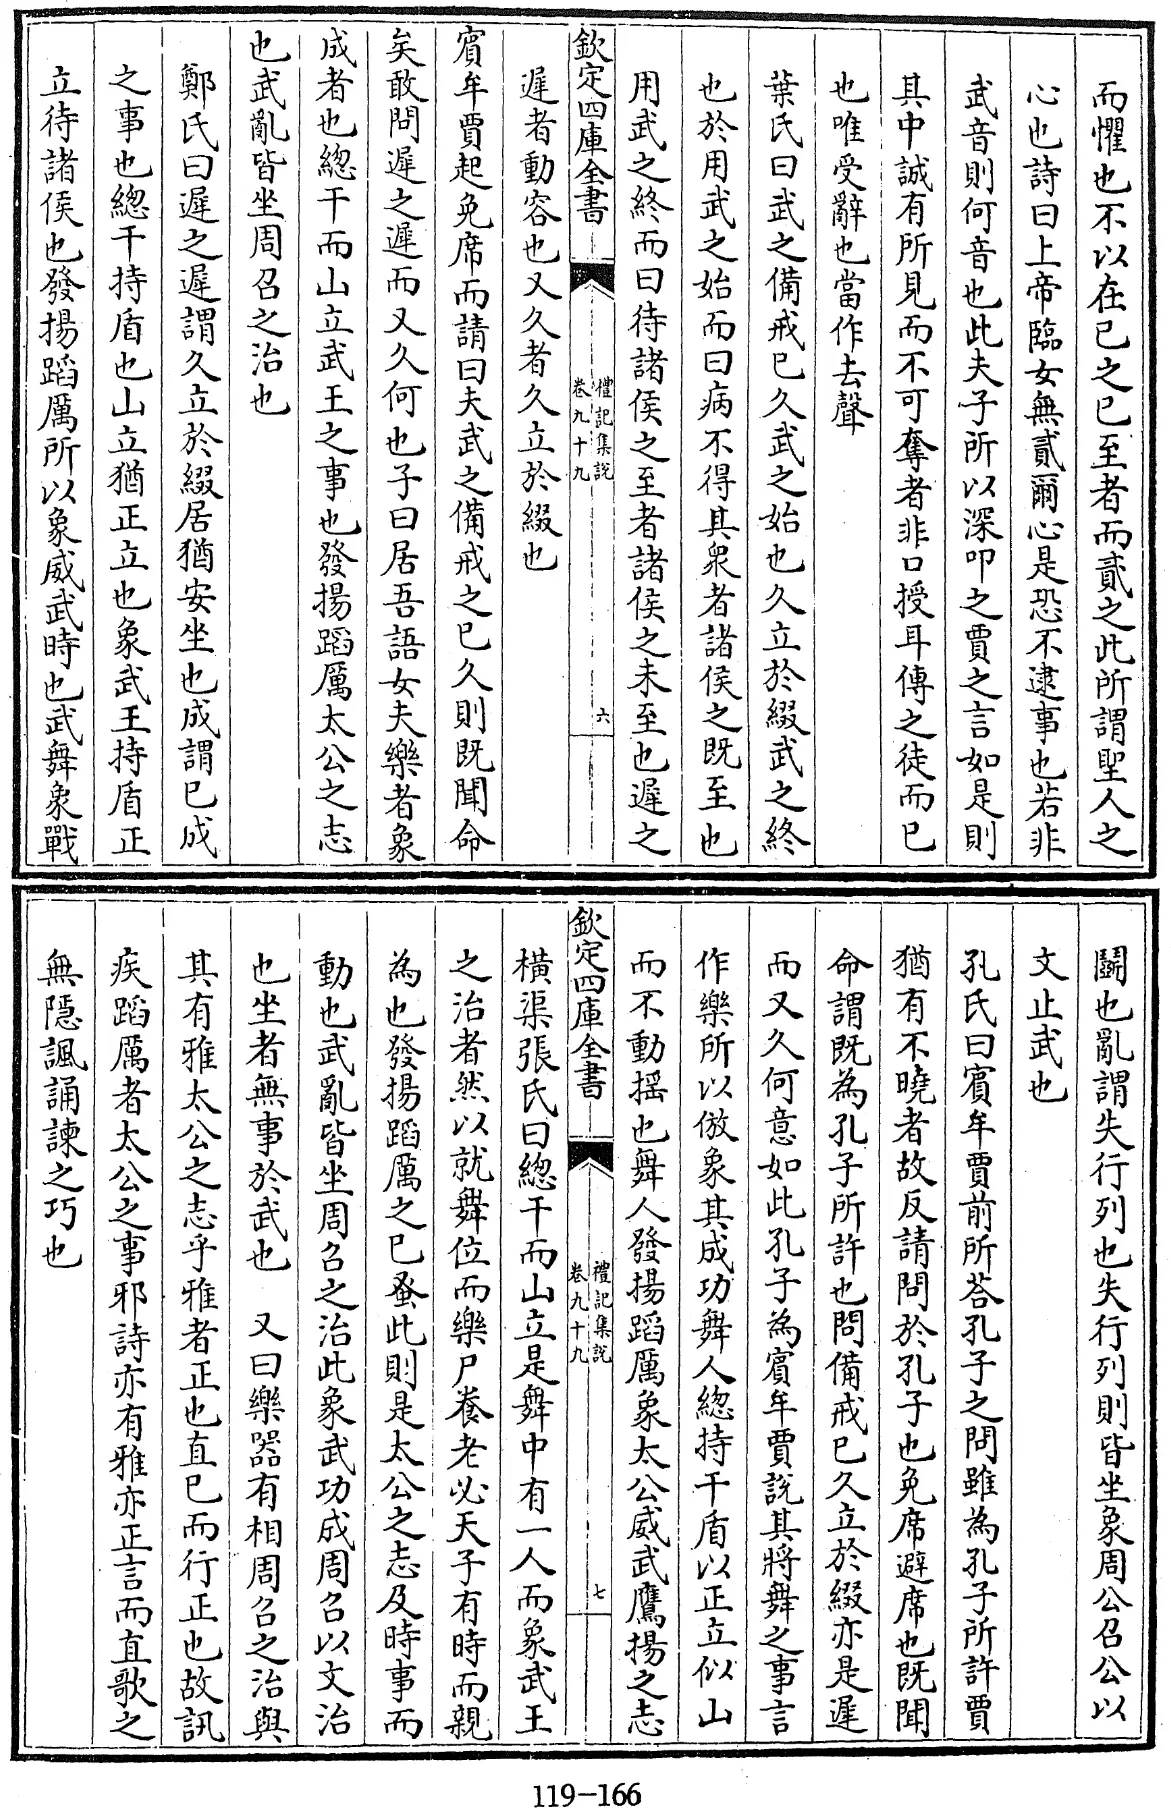 而懼也不以在已之已至者而貳之此所謂聖人之
心也詩曰上帝臨女無貳爾心是恐不逮事也若非
武音則何音也此夫子所以深叩之賈之言如是則
其中誠有所見而不可奪者非口授耳傳之徒而已
也唯受辭也當作去聲
葉氏曰武之備戒已久武之始也久立於綴武之終
也於用武之始而曰病不得其衆者諸侯之既至也
用武之終而曰待諸侯之至者諸侯之未至也遲之
欽定四庫全書
禮記集說
卷九十九
六
遲者動容也又久者久立於綴也
賓牟賈起免席而請曰夫武之備戒之已久則既聞命
矣敢問遲之遲而又久何也子曰居吾語女夫樂者象
成者也總干而山立武王之事也發揚蹈厲太公之志
也武亂皆坐周召之治也
鄭氏曰遲之遲謂久立於綴居猶安坐也成謂已成
之事也總干持盾也山立猶正立也象武王持盾正
立待諸侯也發揚蹈厲所以象威武時也武舞象戰
鬭也亂謂失行列也失行列則皆坐象周公召公以
文止武也
孔氏曰賓牟賈前所答孔子之問雖為孔子所許賈
猶有不曉者故反請問於孔子也免席避席也既聞
命謂既為孔子所許也問備戒已久立於綴亦是遲
而又久何意如此孔子為賓牟賈說其將舞之事言
作樂所以倣象其成功舞人總持干盾以正立似山
而不動搖也舞人發揚蹈厲象太公威武鷹揚之志
欽定四庫全書
禮記集說
卷九十九
七
橫渠張氏曰總干而山立是舞中有一人而象武王
之治者然以就舞位而樂尸養老必天子有時而親
為也發揚蹈厲之已蚤此則是太公之志及時事而
動也武亂皆坐周召之治此象武功成周召以文治
也坐者無事於武也　又曰樂器有相周召之治與
其有雅太公之志乎雅者正也直已而行正也故訊
疾蹈厲者太公之事邪詩亦有雅亦正言而直歌之
無隱諷誦諫之巧也
119-166